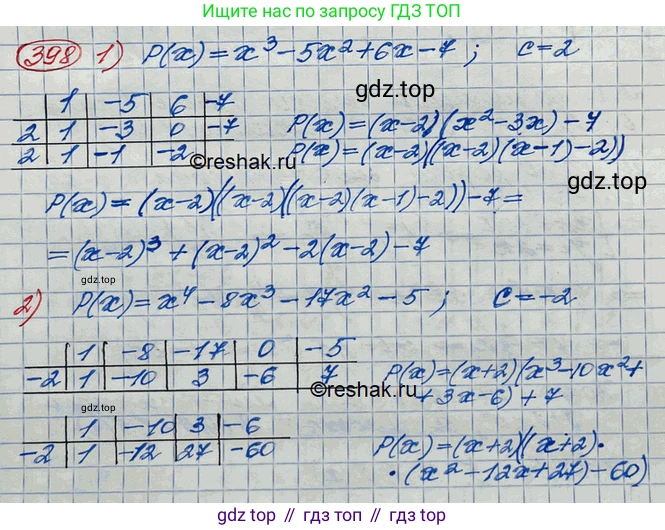 Ищите нас по запросу ГДЗ ТОП
398 1) P(x) = x³ - 5x² + 6x - 7 ; c = 2
gdz.top
1 -5 6 -7
2 1 -3 0 -7 P(x) = (x-2)(x² - 3x) - 7
2 1 -1 -2 P(x) = (x-2)((x-2)(x-1)-2))
©reshak.ru
gdz.top
P(x) = (x-2)((x-2)((x-2)(x-1)-2)) - 7 =
= (x-2)³ + (x-2)² - 2(x-2) - 7
gdz.top
2) P(x) = x⁴ - 8x³ - 17x² - 5 ; c = -2
1 -8 -17 0 -5
-2 1 -10 3 -6 7 P(x) = (x+2)(x³ - 10x² +
+ 3x - 6) + 7
©reshak.ru
gdz.top
1 -10 3 -6
-2 1 -12 27 -60 P(x) = (x+2)((x+2)·
·(x² - 12x + 27) - 60)
gdz.top // gdz.top // gdz.top